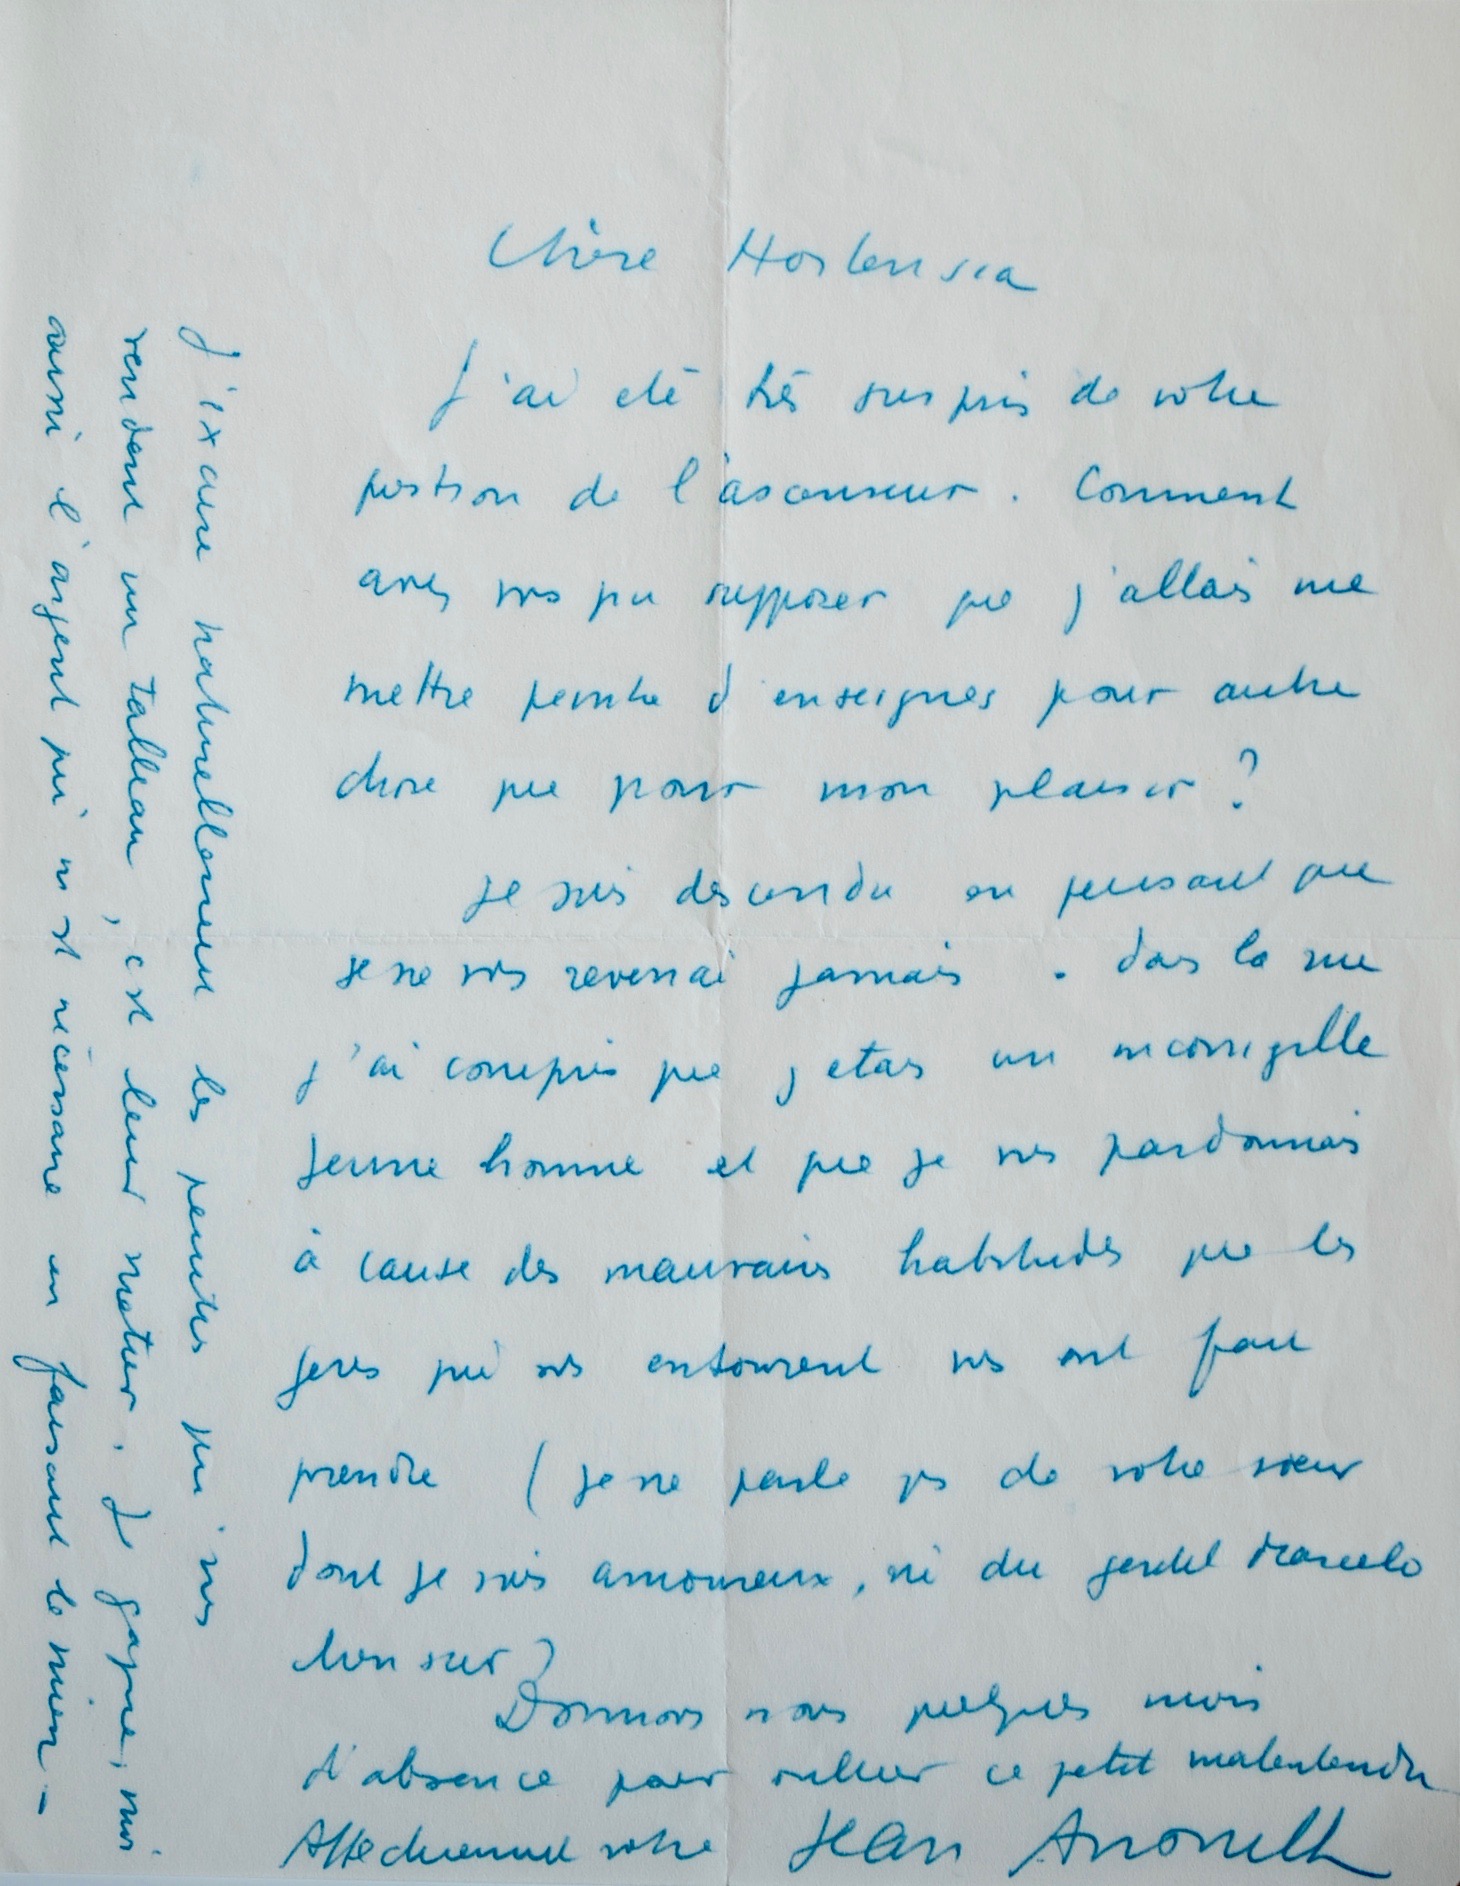 Chère Hortensia
J'ai été très surpris de votre
gestion de l'ascenseur. Comment
avez vous pu supposer que j'allais me
mettre peintre d'enseignes pour autre
chose que pour mon plaisir ?
Je suis descendu en pensant que
je ne vous reverrai jamais. dans la rue
j'ai compris que j'étais un incorrigible
jeune homme et que je vous pardonnais
à cause des mauvaises habitudes que les
gens qui vous entourent vous ont fait
prendre (je ne parle pas de votre soeur
dont je suis amoureux, ni du gentil Marcelo
bien sûr)
Donnons nous quelques mois
d'absence pour oublier ce petit malentendu
Affectueusement votre Jean Anouilh
J'excuse naturellement les peintres qui vous
vendent un tableau, c'est leur métier. Je gagne, moi
aussi l'argent qui m'est nécessaire en faisant le mien -